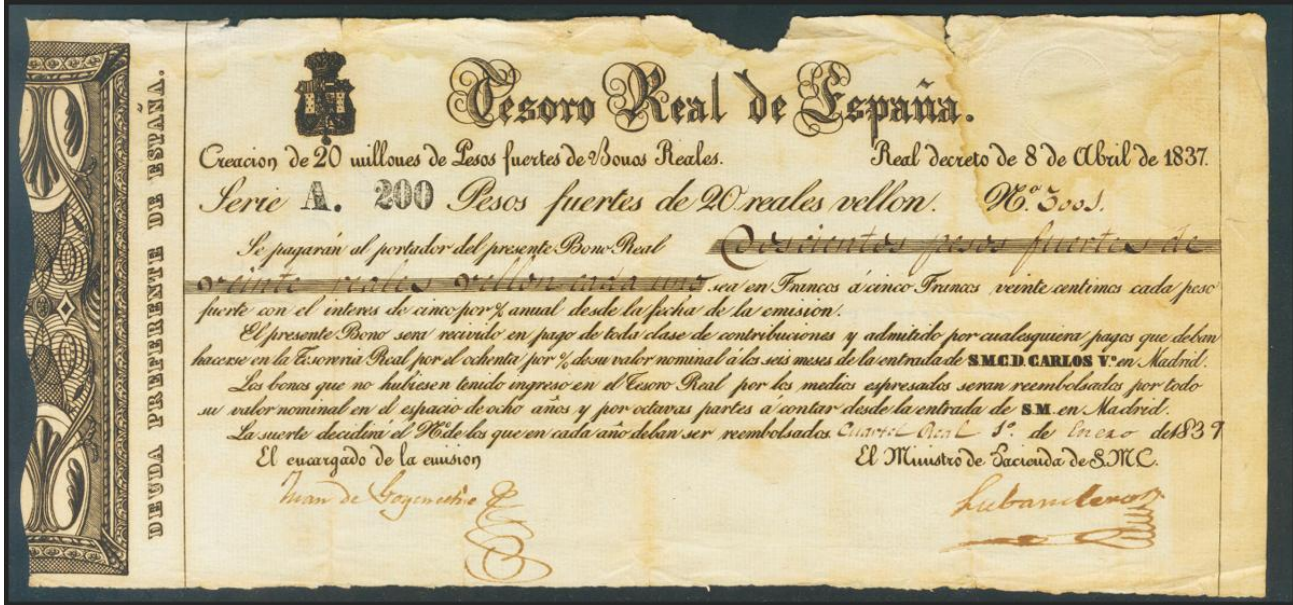 DEUDA PREFERENTE DE ESPAÑA.
Tesoro Real de España.
Creacion de 20 millones de Pesos fuertes de Bonos Reales. Real decreto de 8 de Abril de 1837.
Serie A. 200 Pesos fuertes de 20 reales vellon. N.º 3001.
Se pagarán al portador del presente Bono Real Doscientos pesos fuertes de
veinte reales vellón cada uno sea en Francos á cinco Francos veinte centimos cada peso
fuerte con el interes de cinco por % anual desde la fecha de la emision.
El presente Bono sera recivido en pago de toda clase de contribuciones y admitido por cualesquiera pagos que deban
hacerse en la Tesoreria Real por el ochenta por % de su valor nominal á los seis meses de la entrada de S.M.C.D. CARLOS V.º en Madrid.
Los bonos que no hubiesen tenido ingreso en el Tesoro Real por los medios espresados seran reembolsados por todo
su valor nominal en el espacio de ocho años y por octavas partes á contar desde la entrada de S.M. en Madrid.
La suerte decidirá el Nº de los que en cada año deban ser reembolsados. Cuartel Real 1º. de Enero de 1839
El encargado de la emision El Ministro de Hacienda de S.M.C.
Juan de